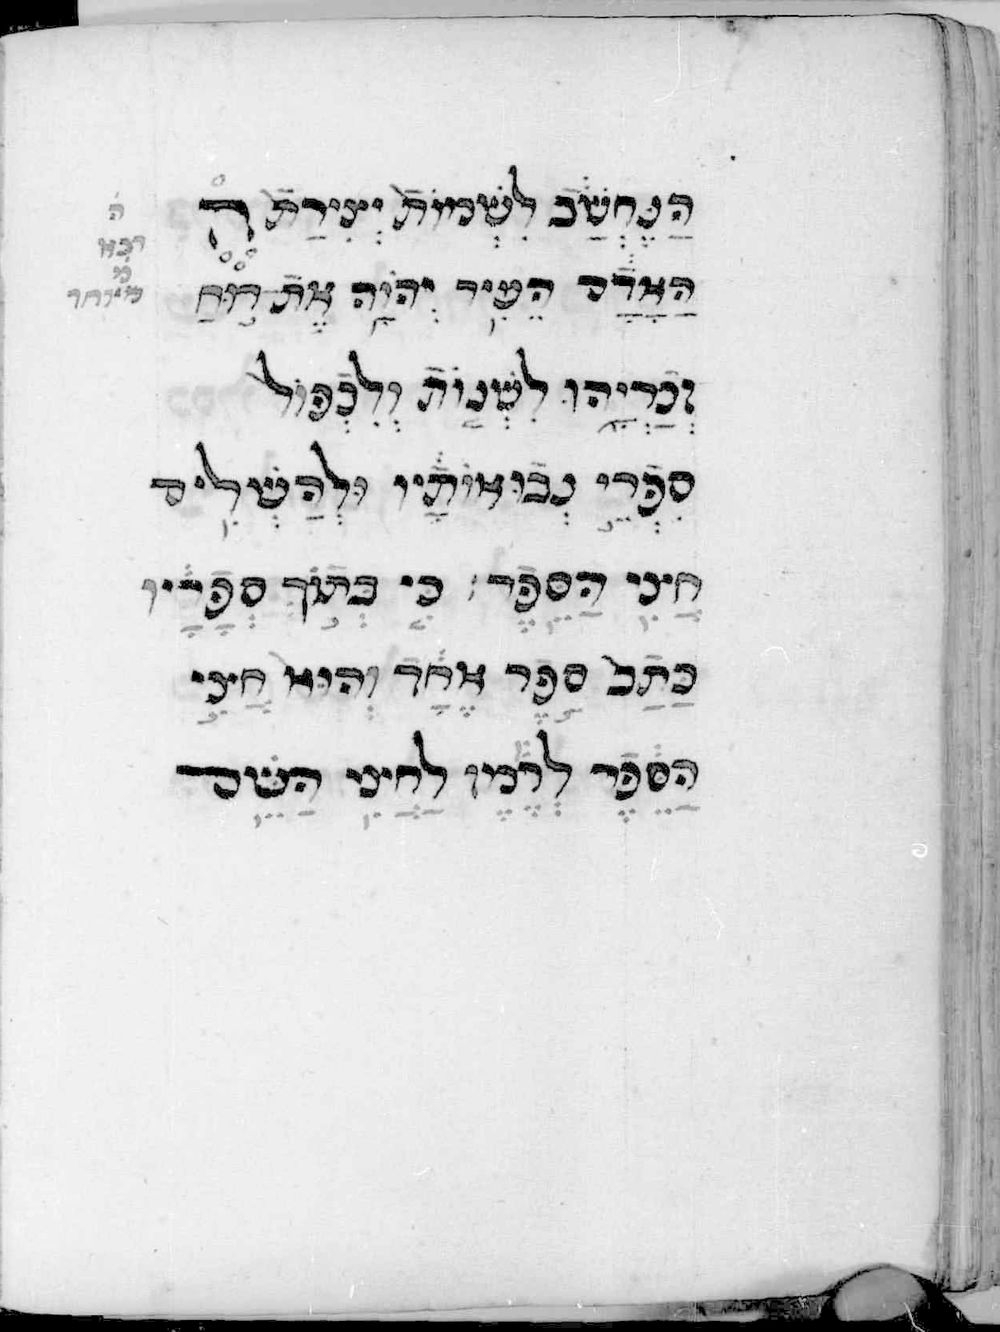 הַנֶּחְשַׁב לִשְׁמוֹת יְצִירַת ה
הָאָדָם הֵעִיר יְהוָה אֶת רוּחַ
זְכַרְיָהוּ לִשְׁנוֹת וְלִכְפּוֹל
סִפְרֵי נְבוּאוֹתָיו וּלְהַשְׁלִים
חֲצִי הַסֵּפֶר׃ כִּי בְּתוֹךְ סְפָרָיו
כָּתַב סֵפֶר אֶחָד וְהוּא חֲצִי
הַסֵּפֶר לְרֶמֶז לַחֲצִי הַשֵּׁם
ה